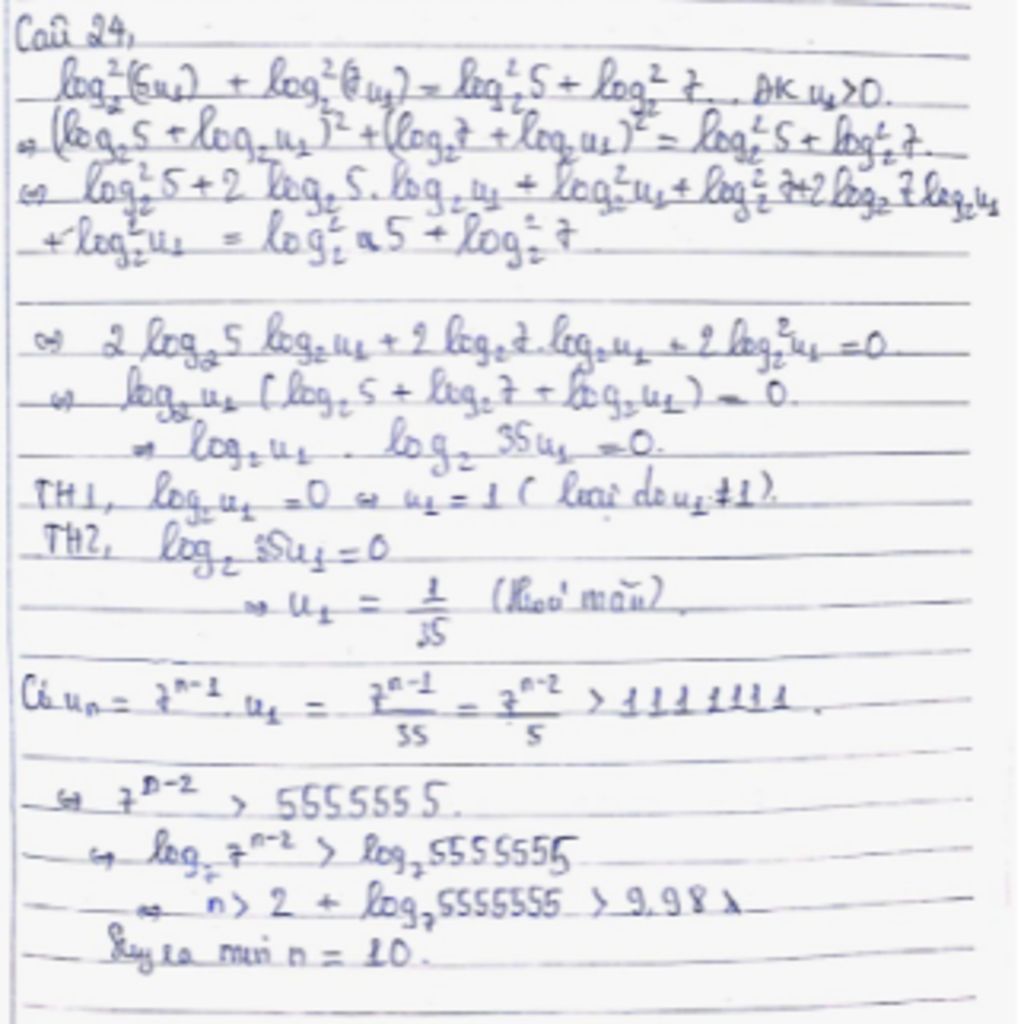 Câu 24,
log₂²(5u₁) + log₂²(7u₁) = log₂²5 + log₂²7. ĐK u₁>0.
⇔ (log₂5 + log₂u₁)² + (log₂7 + log₂u₁)² = log₂²5 + log₂²7.
⇔ log₂²5 + 2 log₂5. log₂u₁ + log₂²u₁ + log₂²7+2log₂7log₂u₁
+ log₂²u₁ = log₂²5 + log₂²7
⇔ 2 log₂5 log₂u₁ + 2 log₂7.log₂u₁ + 2 log₂²u₁ = 0.
⇔ log₂u₁ (log₂5 + log₂7 + log₂u₁) = 0.
⇔ log₂u₁ . log₂ 35u₁ = 0.
TH1, log₂u₁ = 0 ⇔ u₁ = 1 ( loại do u₁≠1).
TH2, log₂ 35u₁ = 0
⇔ u₁ = 1/35 (thoả mãn).
Có uₙ = 7ⁿ⁻¹. u₁ = 7ⁿ⁻¹/35 = 7ⁿ⁻²/5 > 1111111.
⇔ 7ⁿ⁻² > 5555555.
⇔ log₇ 7ⁿ⁻² > log₇5555555
⇔ n > 2 + log₇5555555 > 9,98
Suy ra min n = 10.